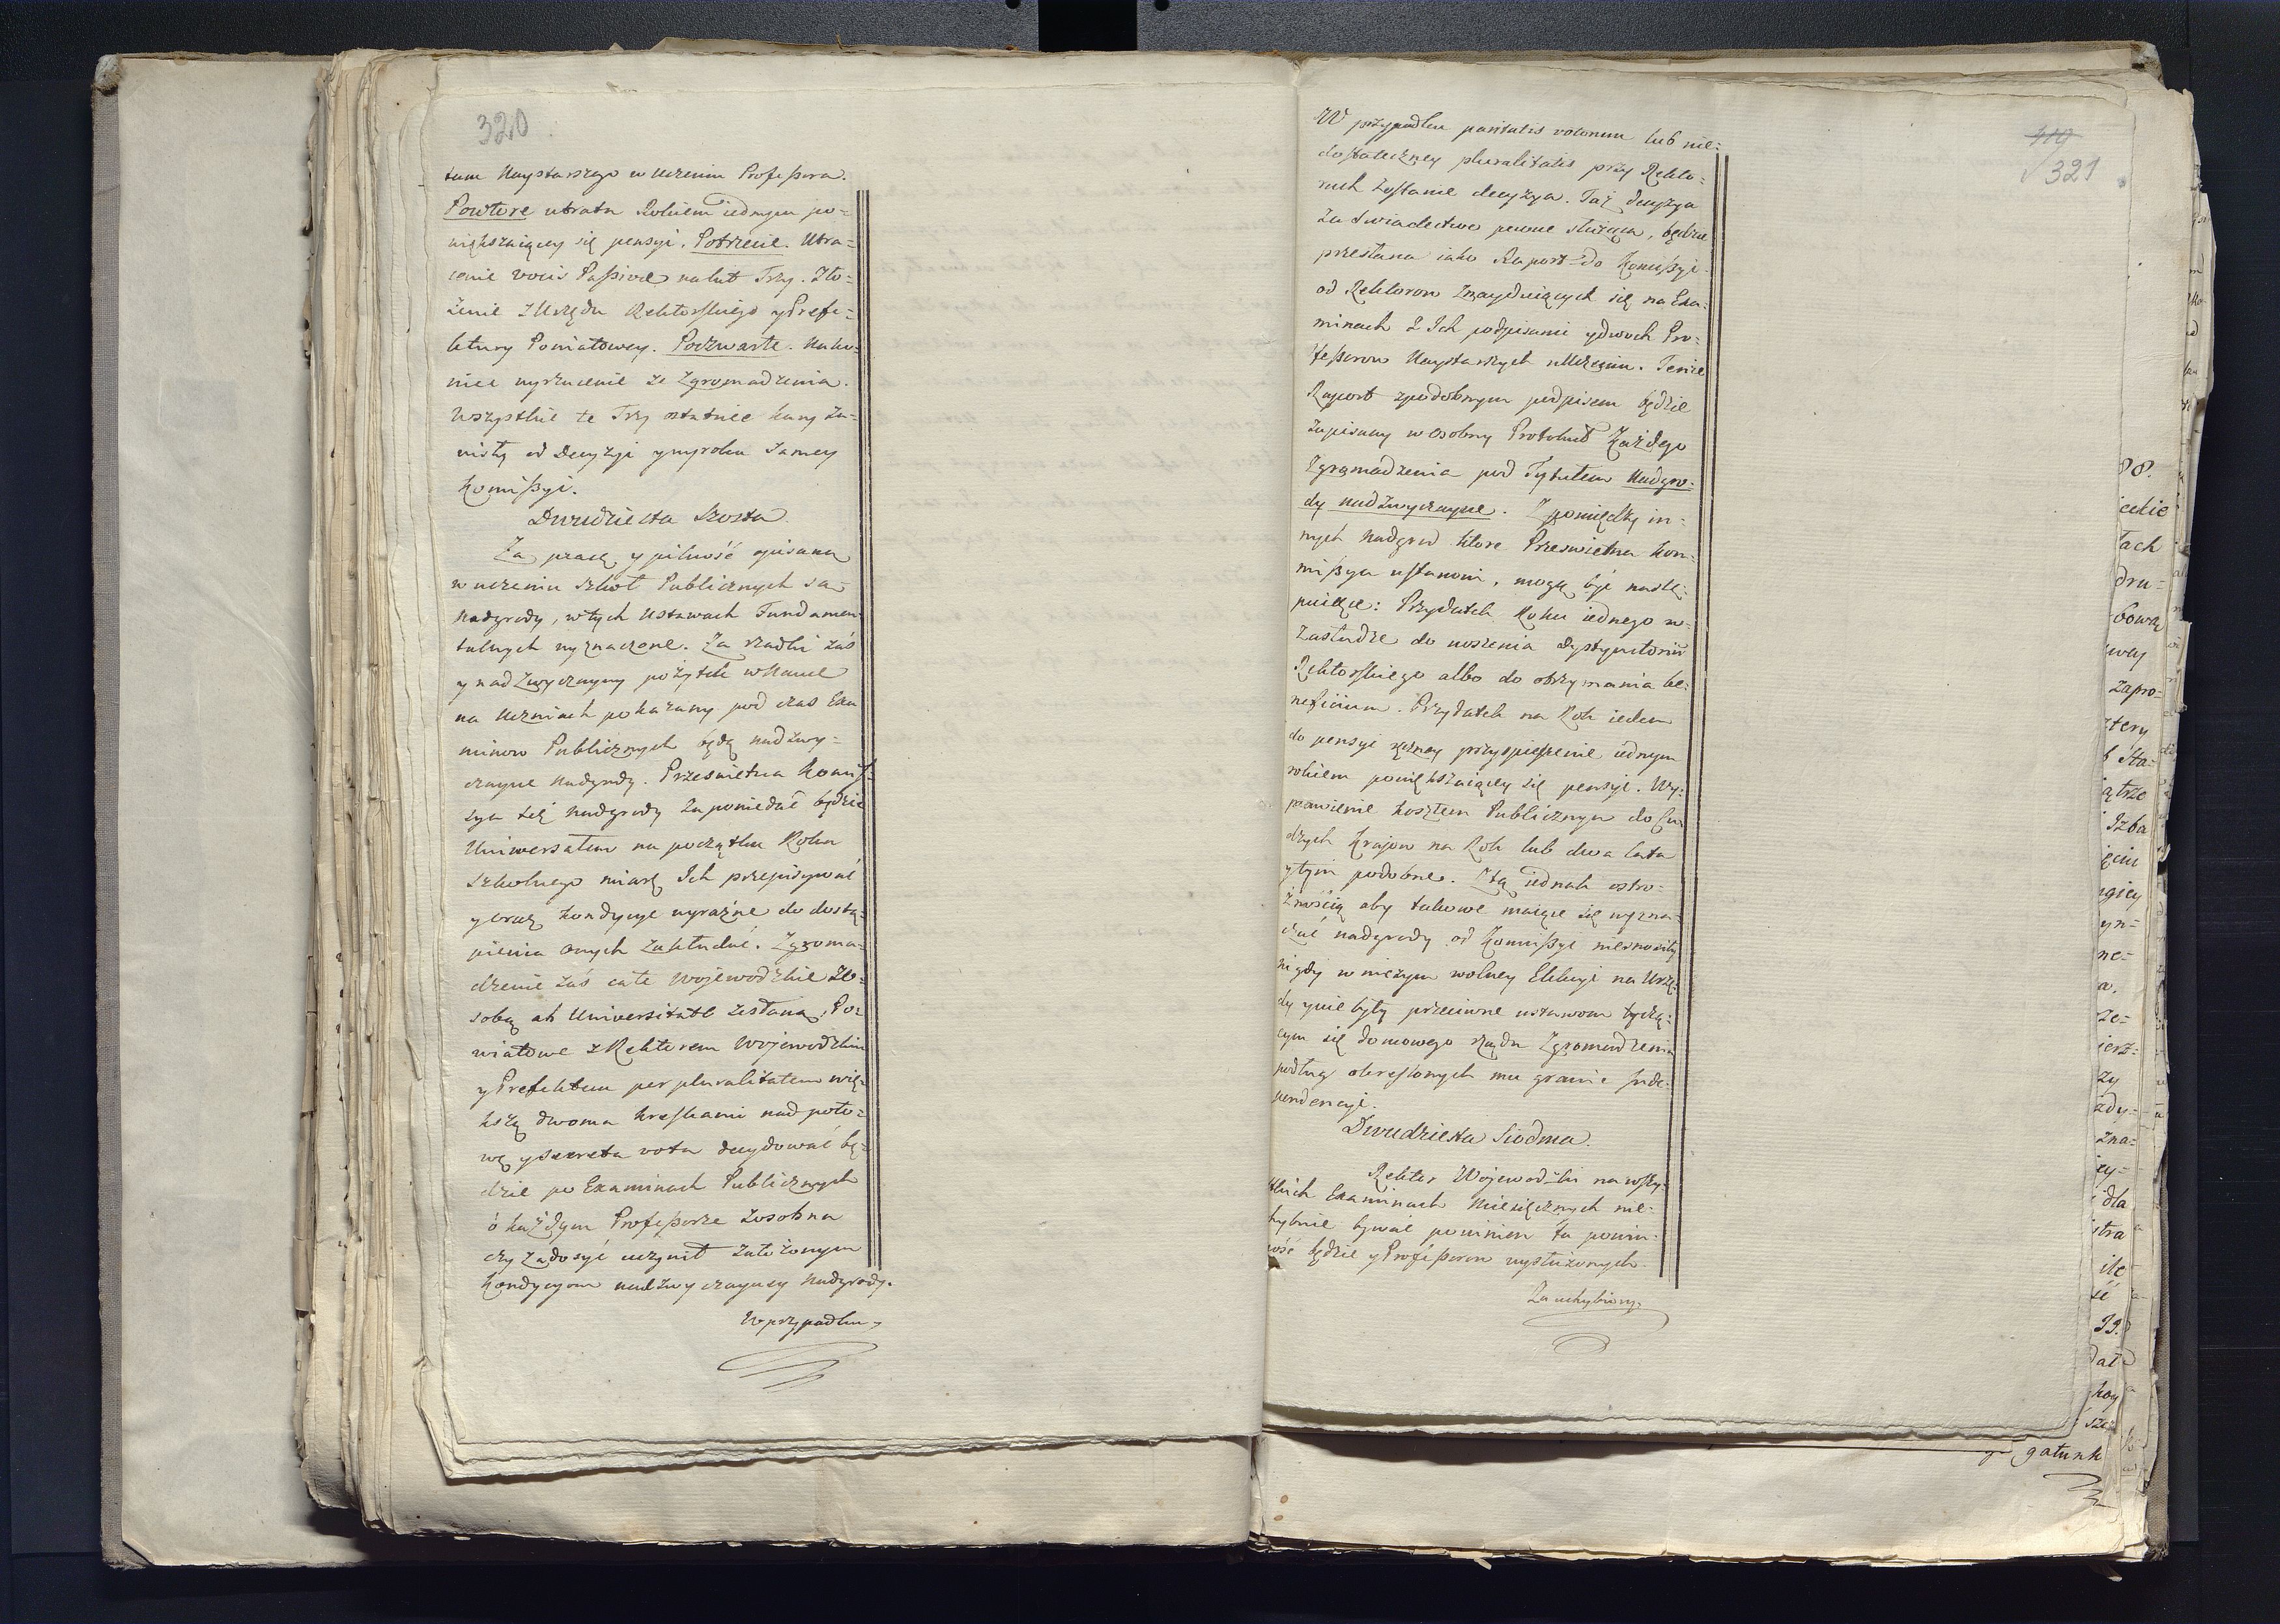 320
tum Naystarszego w Uczeniu Profeſsora.
Powtore utrata Rokiem iednym po=
większaiącey się pensyi. Potrzecie. Utra=
cenie vocis Paſsivæ na lat Trzy. Zło=
żenie z Urzędu Rektorſkiego y Prefe=
ktury Powiatowey. Poczwarte. Nako=
niec wyrzucenie ze Zgromadzenia.
Wszystkie te Trzy ostatnie kary za=
wisły od Decyzyi y wyroku Samey
Komiſsyi.
Dwudziesta Szosta.
Za pracę y pilność opisaną
w uczeniu Szkoł Publicznych są
nadgrody, w tych Ustawach Fundamen
talnych wyznaczone. Za rzadki zaś
y nadzwyczayny pożytek w Nauce
na Uczniach pokazany pod czas Exa
minow Publicznych będą nadzwy=
czayne nadgrody. Prześwietna Komiſ=
sya też nadgrody zapowiedać będzie
Uniwersałem na początku Roku
Szkolnego miarę Ich przepisywać
y oraz kondycye wyraźne do dostą=
pienia onych zakładać. Zgroma=
dzenie zaś całe Wojewodzkie z O=
sobą ab Universitate zesłaną, Po=
wiatowe z Rektorem Wojewodzkim
y Prefektem per pluralitatem wię=
kszą dwoma kreſkami nad poło=
wę y secreta vota decydować bę=
dzie po Examinach Publicznych
o każdym Profeſsorze zosobna
czy zadosyć uczynił założonym
Kondycyom nadzwyczayney nadgrody.
W przypadku
119
321
W przypadku paritatis votorum lub nie=
dostateczney pluralitatis przy Rekto=
rach zostanie decyzya. Taż decyzya
za świadectwo pewne służąca, będzie
przesłana iako Raport do Komiſsyi
od Rektorow znayduiących się na Exa=
minach z Ich podpisami y dwoch Pro=
feſsorow Naystarszych w Uczeniu. Tenże
Raport z podobnym podpisem będzie
zapisany w osobny Protokuł Każdego
Zgromadzenia pod Tytułem Nadgro=
dy nadzwyczayne. Z pomiędzy in=
nych Nadgrod ktore Prześwietna Kom=
miſsya uſtanowi, mogą być nastę=
puiące: Przydatek Roku iednego w
zasłudze do noszenia Dystynktorium
Rektorſkiego albo do otrzymania be=
neficium. Przydatek na Rok ieden
do pensyi roczney przyspieſzenie iednym
rokiem powiększaiącey się pensyi. Wy=
prawienie kosztem Publicznym do Cu
dzych Krajow na Rok lub dwa lata
y tym podobne. Z tą iednak ostro=
żnością aby takowe maiące się wyzna=
czać nadgrody od Komiſsyi nieznosiły
nigdy w niczym wolney Elekcyi na Urzę=
dy y nie były przeciwne ustawom tyczą=
cym się domowego rządu Zgromadzenia
podług okreſlonych mu granic Inde=
pendencyi.
Dwudziesta Siodma.
Rektor Wojewodzki na wſzy=
stkich Examinach Miesięcznych nie=
chybnie bywać powinien ta powin=
ność będzie y Profeſsorow wysłużonych.
Za uchybiony
88.
tach
dru=
bową
way
zapro=
Izba
yn=
ne=
a.
ze=
zy
zna=
dla
gatunk